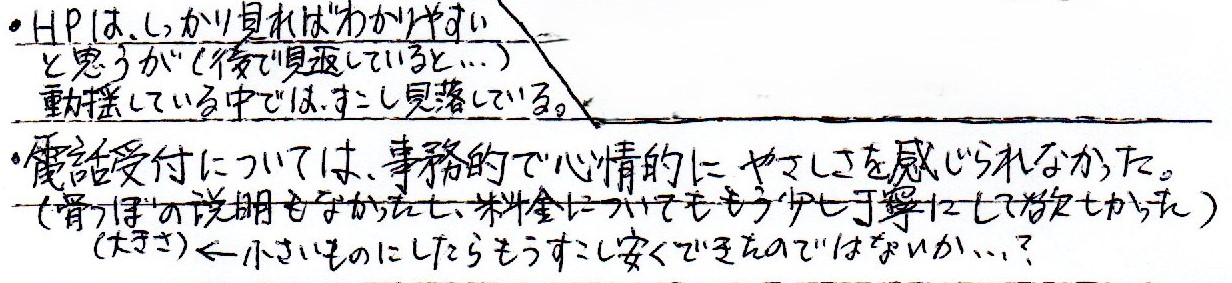 ・HPは、しっかり見ればわかりやすい
と思うが(後で見返していると…)
動揺している中では、すこし見落している。
・電話受付については、事務的で心情的にやさしさを感じられなかった。
(骨つぼの説明もなかったし、料金についてももう少し丁寧にして欲しかった)
(大きさ)←小さいものにしたらもうすこし安くできたのではないか…?